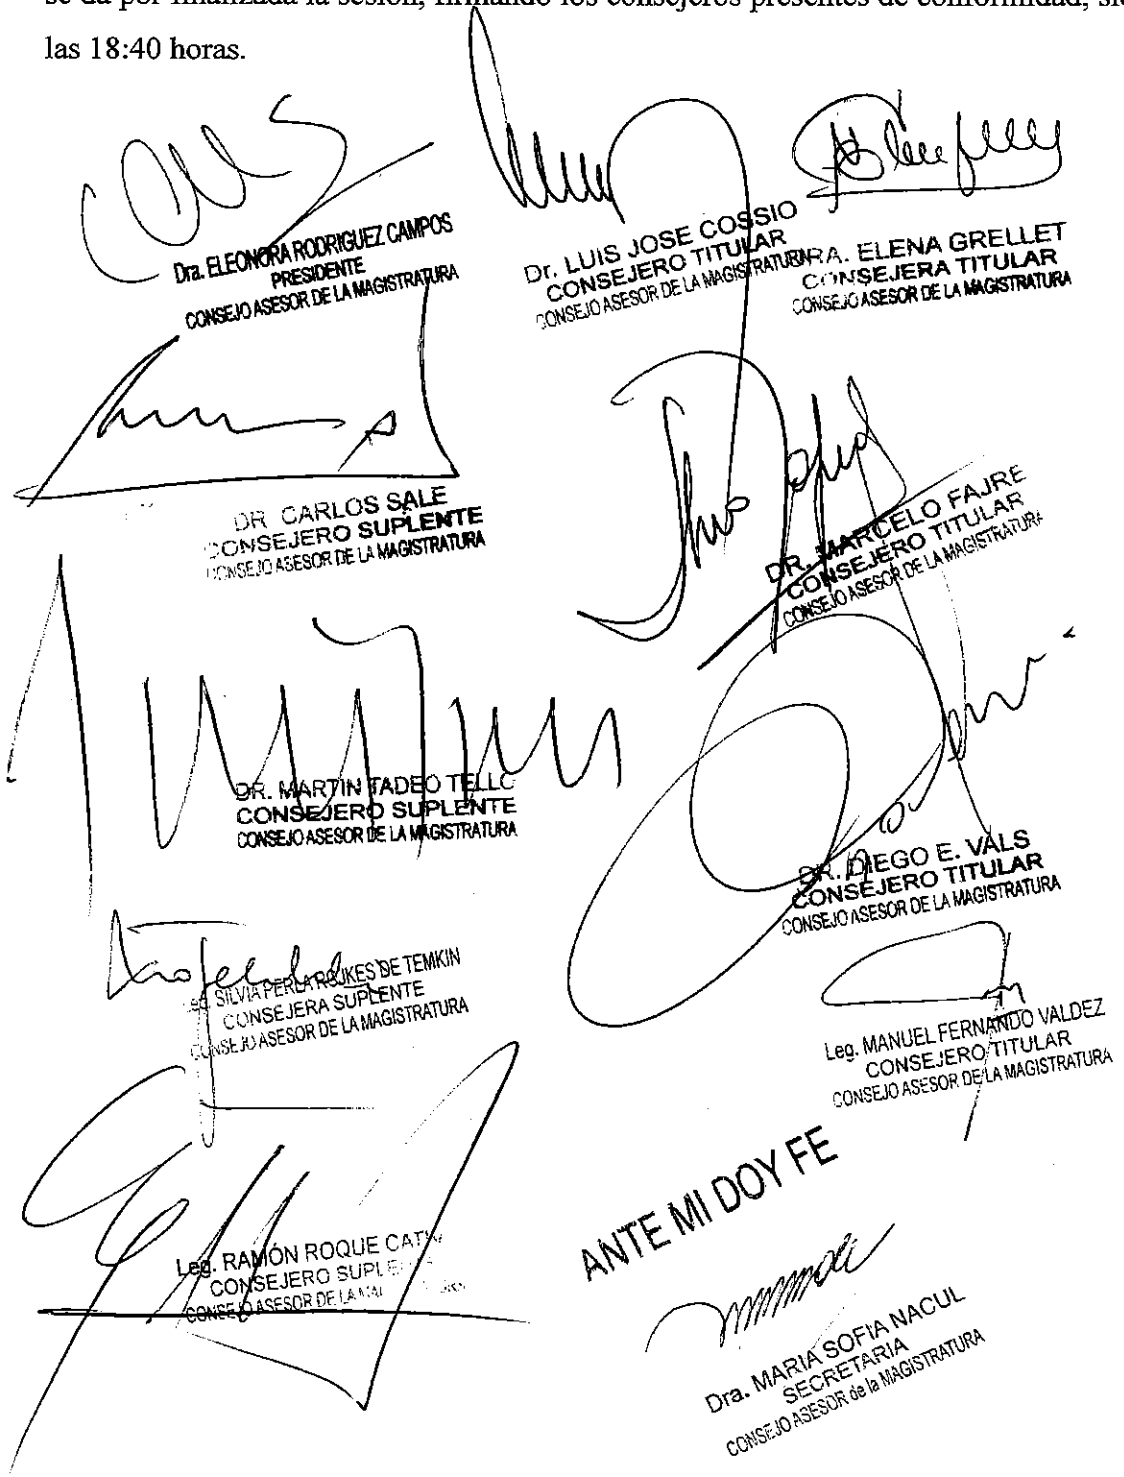 se da por finalizada la sesión, firmando los consejeros presentes de conformidad,
las 18:40 horas.
Dra. ELEONORA RODRIGUEZ CAMPOS
PRESIDENTE
CONSEJO ASESOR DE LA MAGISTRATURA
Dr. LUIS JOSE COSSIO
CONSEJERO TITULAR
CONSEJO ASESOR DE LA MAGISTRATURA
DRA. ELENA GRELLET
CONSEJERA TITULAR
CONSEJO ASESOR DE LA MAGISTRATURA
DR. CARLOS SALE
CONSEJERO SUPLENTE
CONSEJO ASESOR DE LA MAGISTRATURA
DR. MARCELO FAJRE
CONSEJERO TITULAR
CONSEJO ASESOR DE LA MAGISTRATURA
DR. MARTIN TADEO TELLO
CONSEJERO SUPLENTE
CONSEJO ASESOR DE LA MAGISTRATURA
DR. DIEGO E. VALS
CONSEJERO TITULAR
CONSEJO ASESOR DE LA MAGISTRATURA
Leg. SILVIA PERLA ROJKES DE TEMKIN
CONSEJERA SUPLENTE
CONSEJO ASESOR DE LA MAGISTRATURA
Leg. MANUEL FERNANDO VALDEZ
CONSEJERO TITULAR
CONSEJO ASESOR DE LA MAGISTRATURA
Leg. RAMÓN ROQUE
CONSEJERO
CONSEJO ASESOR DE LA
ANTE MI DOY FE
Dra. MARIA SOFIA NACUL
SECRETARIA
CONSEJO ASESOR de la MAGISTRATURA